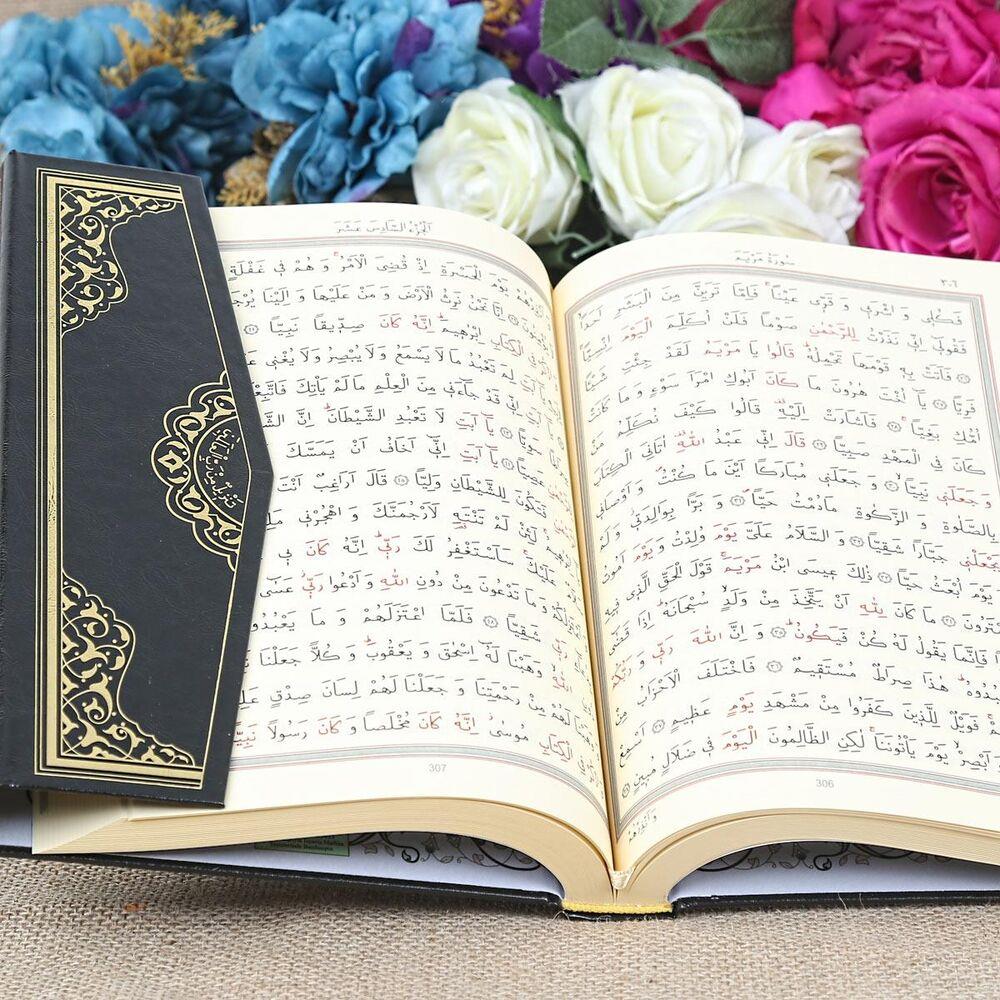 سُورَةُ مَرْيَمَ ٣٠٦
فَكُلِي وَ اشْرَبِي وَ قَرِّي عَيْنًا فَاِمَّا تَرَيِنَّ مِنَ الْبَشَرِ اَحَدًا
فَقُولِي اِنِّي نَذَرْتُ لِلرَّحْمٰنِ صَوْمًا فَلَنْ اُكَلِّمَ الْيَوْمَ اِنْسِيًّا
﴿٢٦﴾ فَاَتَتْ بِهِ قَوْمَهَا تَحْمِلُهُ قَالُوا يَا مَرْيَمُ لَقَدْ جِئْتِ شَيْئًا
فَرِيًّا ﴿٢٧﴾ يَا اُخْتَ هٰرُونَ مَا كَانَ اَبُوكِ امْرَاَ سَوْءٍ وَ مَا كَانَتْ
اُمُّكِ بَغِيًّا ﴿٢٨﴾ فَاَشَارَتْ اِلَيْهِ قَالُوا كَيْفَ نُكَلِّمُ مَنْ
كَانَ فِي الْمَهْدِ صَبِيًّا ﴿٢٩﴾ قَالَ اِنِّي عَبْدُ اللّٰهِ اٰتَانِيَ الْكِتَابَ
وَ جَعَلَنِي نَبِيًّا ﴿٣٠﴾ وَ جَعَلَنِي مُبَارَكًا اَيْنَ مَا كُنْتُ وَ اَوْصَانِي
بِالصَّلٰوةِ وَ الزَّكٰوةِ مَادُمْتُ حَيًّا ﴿٣١﴾ وَ بَرًّا بِوَالِدَتِي
يَجْعَلْنِي جَبَّارًا شَقِيًّا ﴿٣٢﴾ وَ السَّلَامُ عَلَيَّ يَوْمَ وُلِدْتُ وَ يَوْمَ اَمُوتُ
يَوْمَ اُبْعَثُ حَيًّا ﴿٣٣﴾ ذٰلِكَ عِيسَى ابْنُ مَرْيَمَ قَوْلَ الْحَقِّ الَّذِي فِيهِ
يَمْتَرُونَ ﴿٣٤﴾ مَا كَانَ لِلّٰهِ اَنْ يَتَّخِذَ مِنْ وَلَدٍ سُبْحَانَهُ اِذَا قَضٰى
فَاِنَّمَا يَقُولُ لَهُ كُنْ فَيَكُونُ ﴿٣٥﴾ وَ اِنَّ اللّٰهَ رَبِّي وَ رَبُّكُمْ
هٰذَا صِرَاطٌ مُسْتَقِيمٌ ﴿٣٦﴾ فَاخْتَلَفَ الْاَحْزَابُ مِنْ
فَوَيْلٌ لِلَّذِينَ كَفَرُوا مِنْ مَشْهَدِ يَوْمٍ عَظِيمٍ ﴿٣٧﴾ اَسْمِعْ
اَبْصِرْ يَوْمَ يَأْتُونَنَا لٰكِنِ الظَّالِمُونَ الْيَوْمَ فِي ضَلَالٍ مُبِينٍ ﴿٣٨﴾
وَ اَنْذِرْهُمْ
306
اَلْجُزْءُ السَّادِسَ عَشَرَ
وَ اَنْذِرْهُمْ يَوْمَ الْحَسْرَةِ اِذْ قُضِيَ الْاَمْرُ وَ هُمْ فِي غَفْلَةٍ
اِنَّا نَحْنُ نَرِثُ الْاَرْضَ وَ مَنْ عَلَيْهَا وَ اِلَيْنَا
فِي الْكِتَابِ اِبْرٰهِيمَ اِنَّهُ كَانَ صِدِّيقًا نَبِيًّا ﴿٤١﴾
يَا اَبَتِ لِمَ تَعْبُدُ مَا لَا يَسْمَعُ وَ لَا يُبْصِرُ وَ لَا يُغْنِي
يَا اَبَتِ اِنِّي قَدْ جَاءَنِي مِنَ الْعِلْمِ مَا لَمْ يَأْتِكَ
﴿٤٣﴾ يَا اَبَتِ لَا تَعْبُدِ الشَّيْطَانَ اِنَّ
عَصِيًّا ﴿٤٤﴾ يَا اَبَتِ اِنِّي اَخَافُ اَنْ يَمَسَّكَ
فَتَكُونَ لِلشَّيْطَانِ وَلِيًّا ﴿٤٥﴾ قَالَ اَرَاغِبٌ اَنْتَ
لَئِنْ لَمْ تَنْتَهِ لَاَرْجُمَنَّكَ وَ اهْجُرْنِي
عَلَيْكَ سَاَسْتَغْفِرُ لَكَ رَبِّي اِنَّهُ كَانَ بِي
وَ مَا تَدْعُونَ مِنْ دُونِ اللّٰهِ وَ اَدْعُوا رَبِّي عَسٰى
شَقِيًّا ﴿٤٨﴾ فَلَمَّا اعْتَزَلَهُمْ وَ مَا يَعْبُدُونَ
اللّٰهِ وَهَبْنَا لَهُ اِسْحٰقَ وَ يَعْقُوبَ وَ كُلًّا جَعَلْنَا
لَهُمْ مِنْ رَحْمَتِنَا وَ جَعَلْنَا لَهُمْ لِسَانَ صِدْقٍ
فِي الْكِتَابِ مُوسٰى اِنَّهُ كَانَ مُخْلَصًا وَ كَانَ رَسُولًا نَبِيًّا
307
تَنْزِيلٌ مِنْ رَبِّ الْعَالَمِينَ